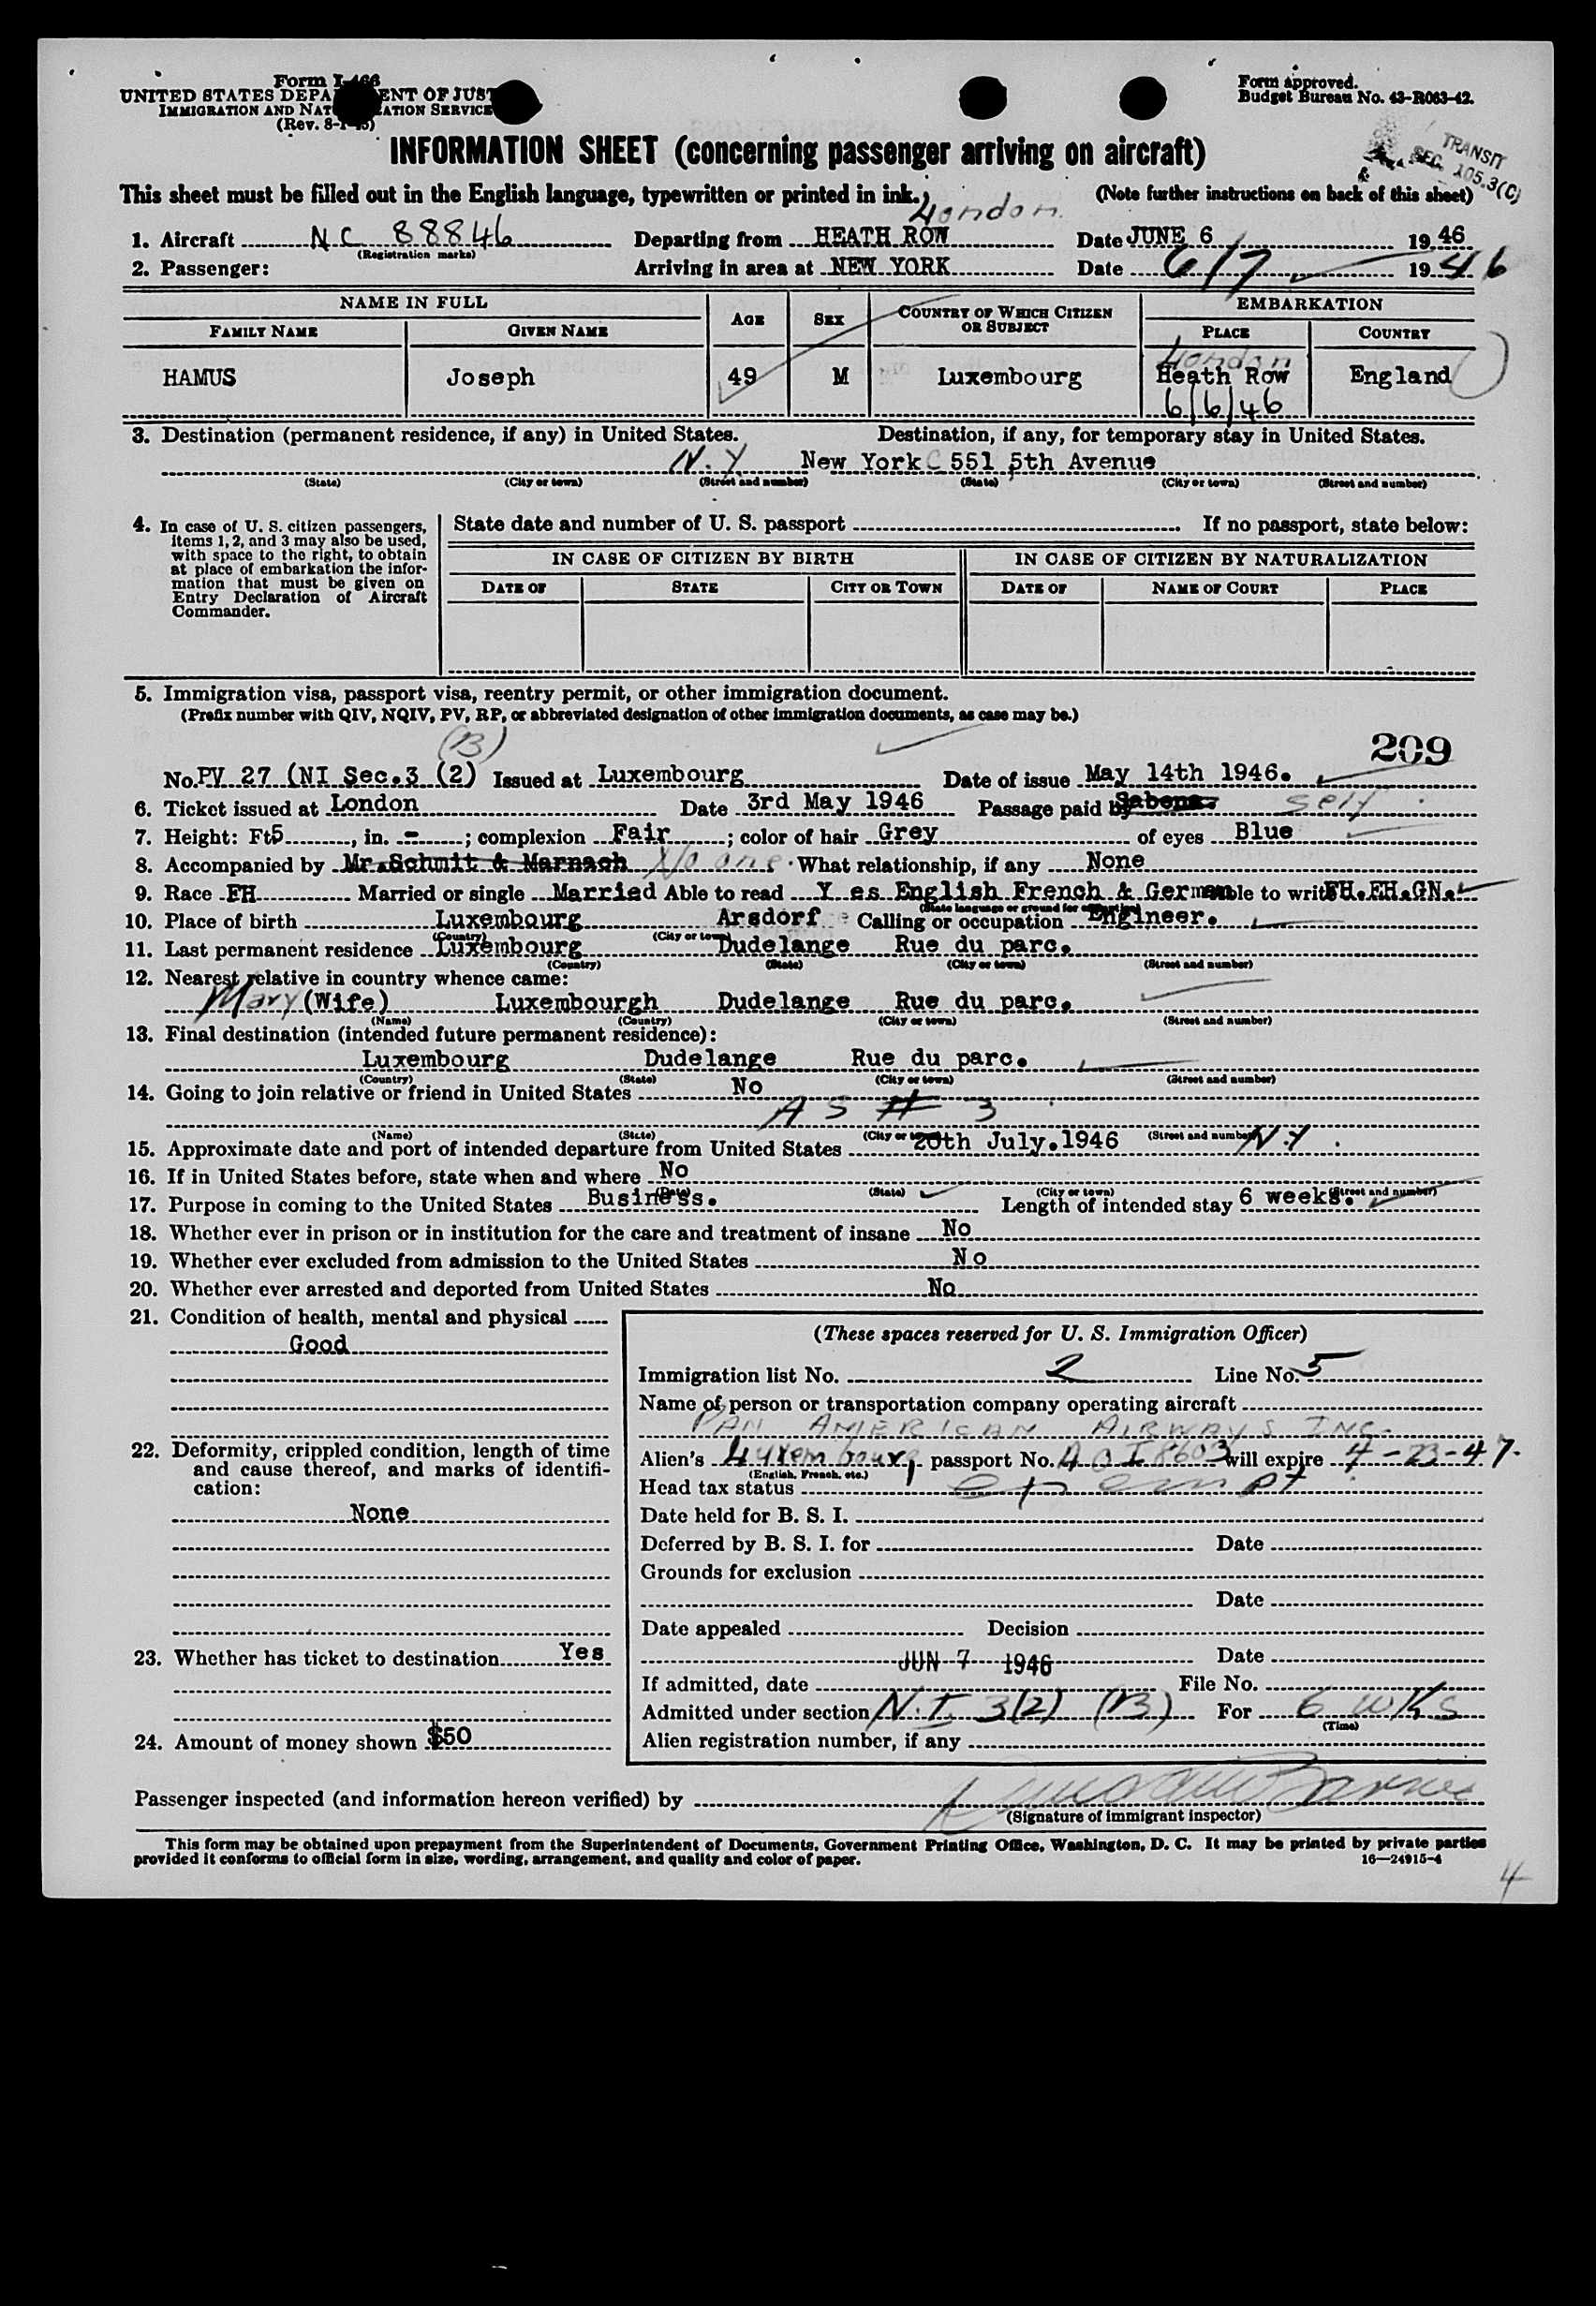 Form I-466
UNITED STATES DEPARTMENT OF JUSTICE
IMMIGRATION AND NATURALIZATION SERVICE
(Rev. 8-1-45)
Form approved.
Budget Bureau No. 43-R063-42.
TRANSIT
SEC. 105.3(C)
INFORMATION SHEET (concerning passenger arriving on aircraft)
This sheet must be filled out in the English language, typewritten or printed in ink. (Note further instructions on back of this sheet)
London
1. Aircraft NC 88846 Departing from HEATH ROW Date JUNE 6 1946
(Registration marks)
2. Passenger: Arriving in area at NEW YORK Date 6/7 1946
NAME IN FULL AGE SEX COUNTRY OF WHICH CITIZEN OR SUBJECT EMBARKATION
FAMILY NAME GIVEN NAME PLACE COUNTRY
London
HAMUS Joseph 49 M Luxembourg Heath Row England
6/6/46
3. Destination (permanent residence, if any) in United States. Destination, if any, for temporary stay in United States.
N.Y. New York C 551 5th Avenue
(State) (City or town) (Street and number) (State) (City or town) (Street and number)
4. In case of U. S. citizen passengers, items 1, 2, and 3 may also be used, with space to the right, to obtain at place of embarkation the information that must be given on Entry Declaration of Aircraft Commander.
State date and number of U. S. passport If no passport, state below:
IN CASE OF CITIZEN BY BIRTH IN CASE OF CITIZEN BY NATURALIZATION
DATE OF STATE CITY OR TOWN DATE OF NAME OF COURT PLACE
5. Immigration visa, passport visa, reentry permit, or other immigration document.
(Prefix number with QIV, NQIV, PV, RP, or abbreviated designation of other immigration documents, as case may be.)
(B)
209
No. PV 27 (NI Sec.3 (2) Issued at Luxembourg Date of issue May 14th 1946.
6. Ticket issued at London Date 3rd May 1946 Passage paid by Sabena. self
7. Height: Ft5, in. -; complexion Fair; color of hair Grey of eyes Blue
8. Accompanied by Mr.Schmit & Marnach No one. What relationship, if any None
9. Race FH Married or single Married Able to read Y es English French & German Able to write FH.EH.GN.
(State language or ground for exemption)
10. Place of birth Luxembourg Arsdorf Calling or occupation Engineer.
(Country) (City or town)
11. Last permanent residence Luxembourg Dudelange Rue du parc.
(Country) (State) (City or town) (Street and number)
12. Nearest relative in country whence came:
Mary (Wife) Luxembourgh Dudelange Rue du parc.
(Name) (Country) (City or town) (Street and number)
13. Final destination (intended future permanent residence):
Luxembourg Dudelange Rue du parc.
(Country) (State) (City or town) (Street and number)
14. Going to join relative or friend in United States No
AS # 3
(Name) (State) (City or town) (Street and number)
15. Approximate date and port of intended departure from United States 20th July.1946 N.Y.
16. If in United States before, state when and where No
(Date) (State) (City or town) (Street and number)
17. Purpose in coming to the United States Business. Length of intended stay 6 weeks.
18. Whether ever in prison or in institution for the care and treatment of insane No
19. Whether ever excluded from admission to the United States No
20. Whether ever arrested and deported from United States No
21. Condition of health, mental and physical
Good
22. Deformity, crippled condition, length of time and cause thereof, and marks of identification:
None
23. Whether has ticket to destination Yes
24. Amount of money shown $50
(These spaces reserved for U. S. Immigration Officer)
Immigration list No. 2 Line No. 5
Name of person or transportation company operating aircraft
PAN AMERICAN AIRWAYS INC.
Alien's Luxembourg passport No. A O I 8603 will expire 4-23-47.
(English, French, etc.)
Head tax status exempt
Date held for B. S. I.
Deferred by B. S. I. for Date
Grounds for exclusion
Date
Date appealed Decision
JUN 7 1946 Date
If admitted, date File No.
Admitted under section N.I. 3(2) (B) For 6 wks
(Time)
Alien registration number, if any
Passenger inspected (and information hereon verified) by
(Signature of immigrant inspector)
This form may be obtained upon prepayment from the Superintendent of Documents, Government Printing Office, Washington, D. C. It may be printed by private parties
provided it conforms to official form in size, wording, arrangement, and quality and color of paper. 16—24915-4
4